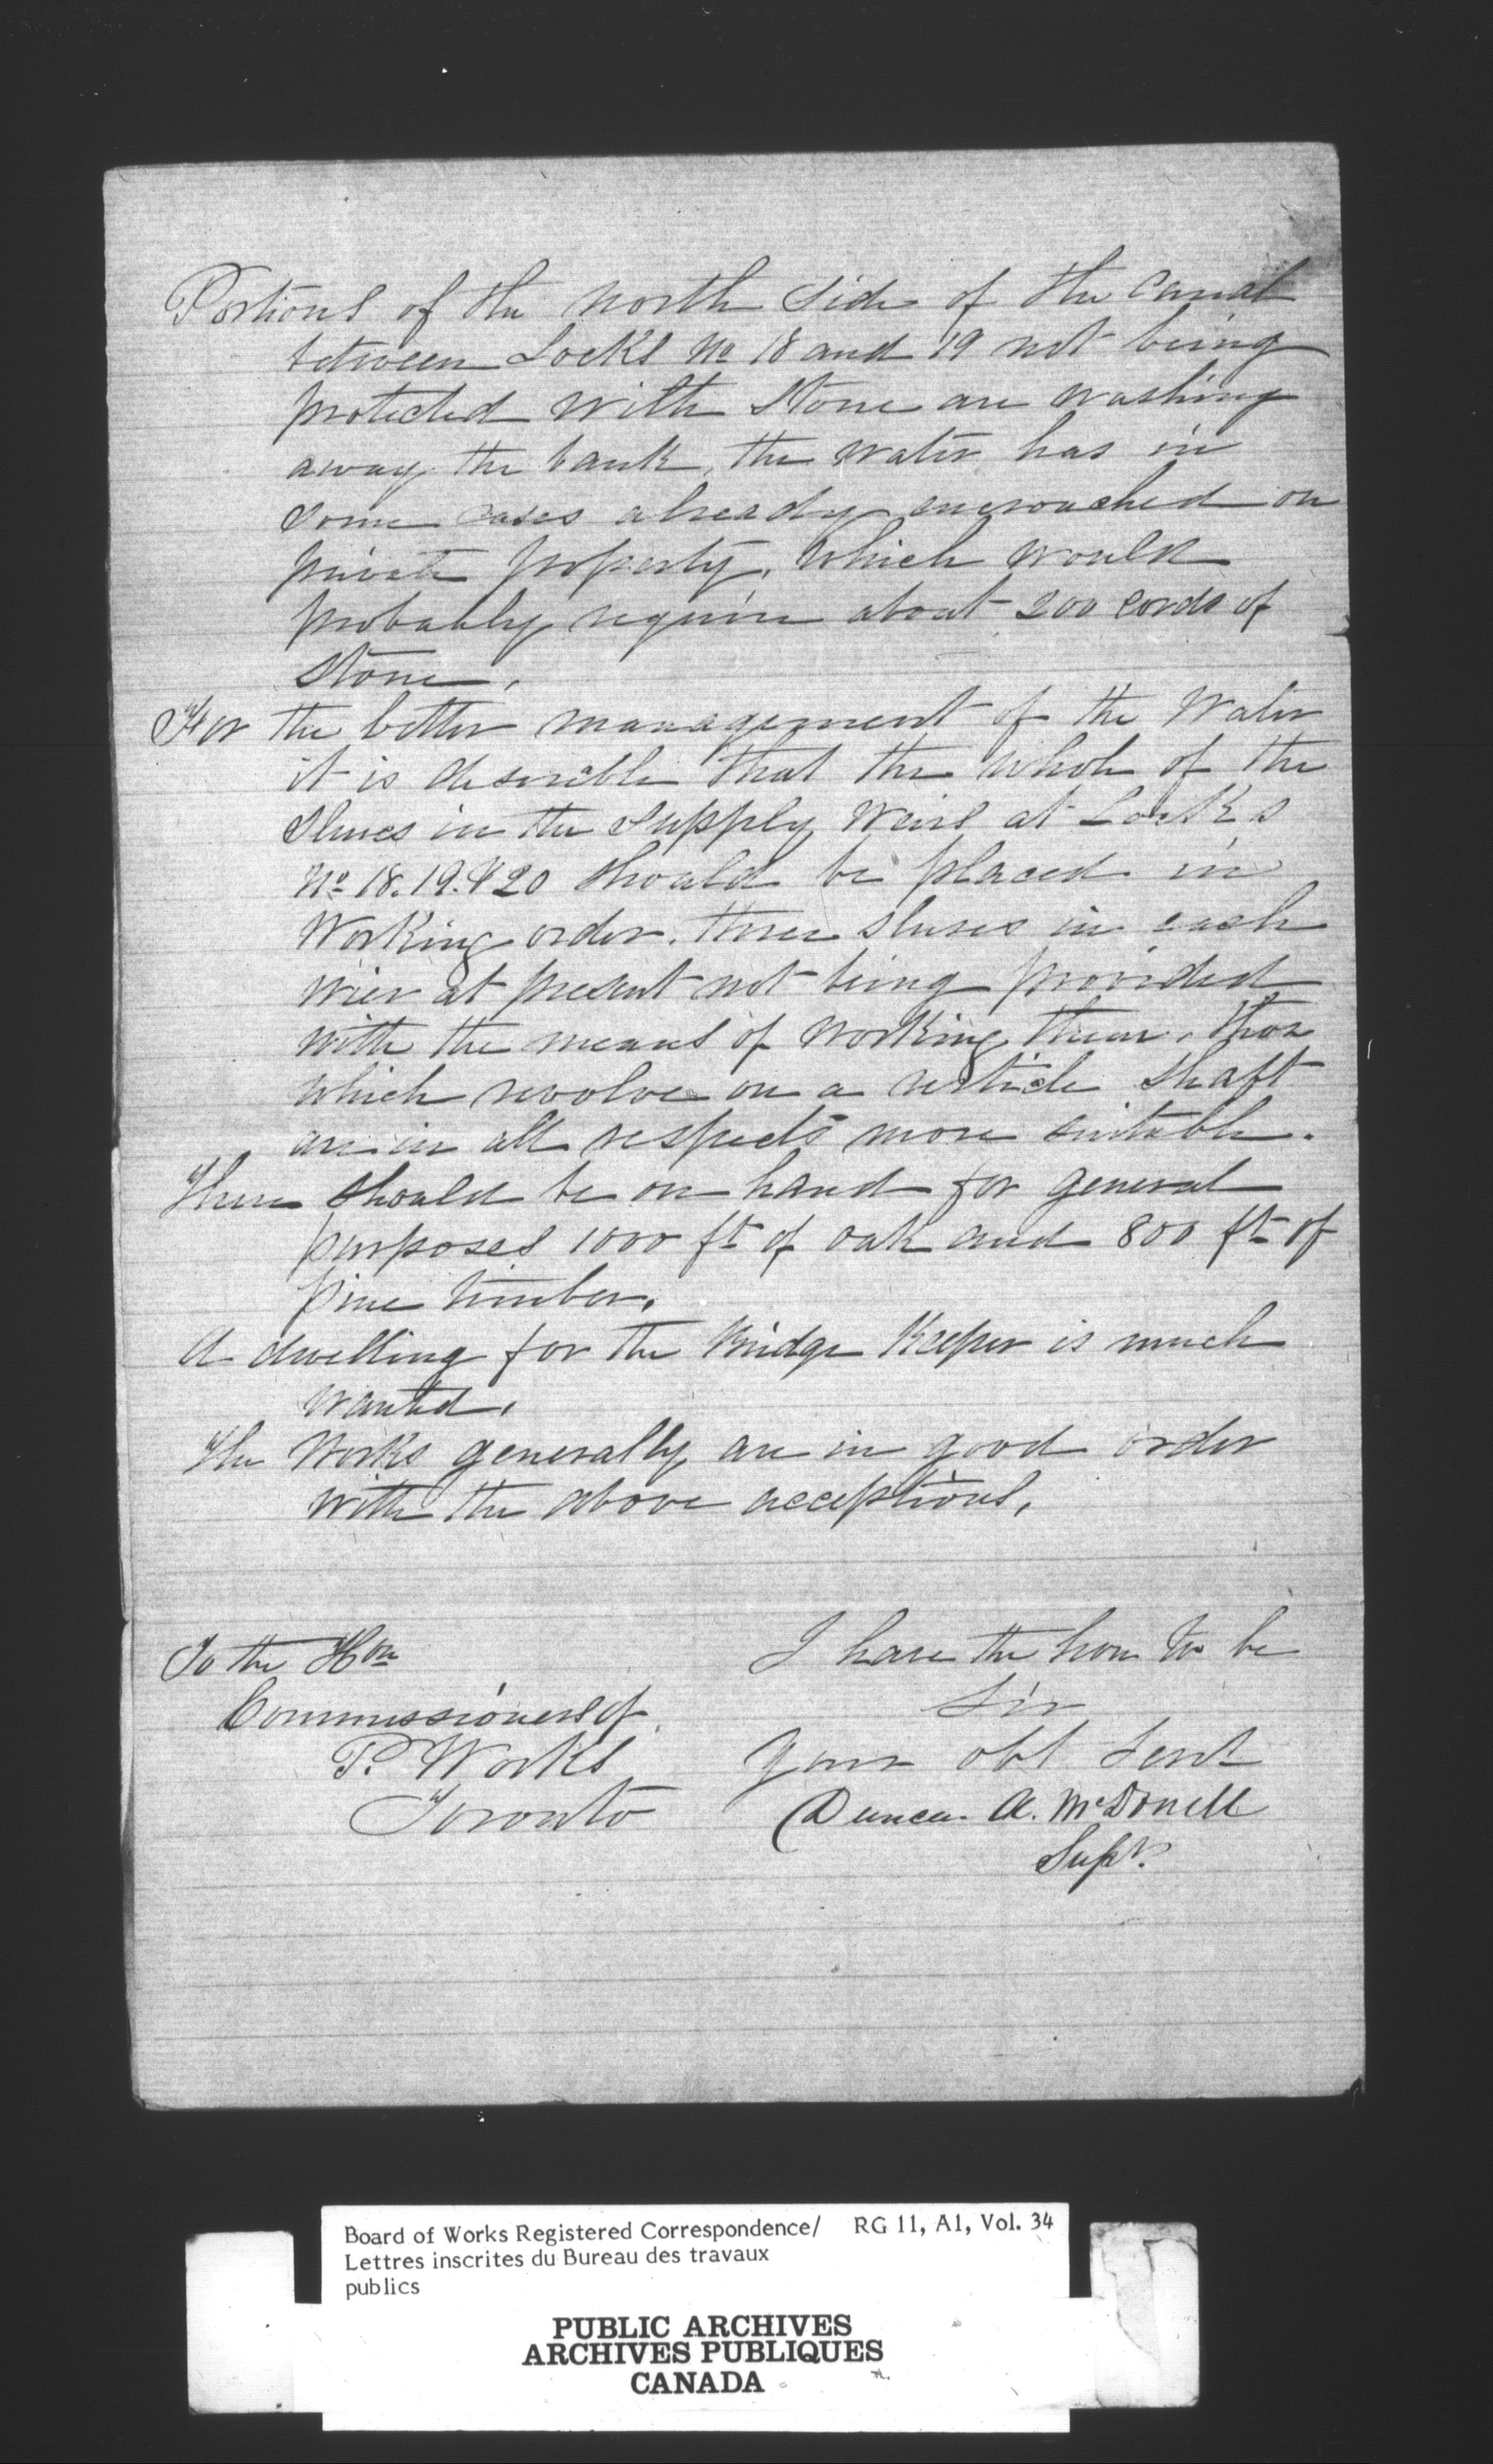 Portions of the north side of the Canal
between Locks No 18 and 19 not being
protected with Stone are washing
away the bank, the water has in
some cases already encroached on
private property, which would
probably require about 200 cords of
Stone.
For the better management of the Water
it is desireble that the whole of the
Sluses in the Supply Weirs at Locks
No 18. 19. & 20 should be placed in
Working order. three sluses in each
wier at present not being provided
with the means of working them, those
which revolve on a verticle shaft
are in all respects more suitable.
There should be on hand for general
purposes 1000 ft of oak and 800 ft of
pine timber.
A dwelling for the Bridge Keeper is much
wanted.
The Works generally are in good order
with the above acceptions.
To the Hon
Commissioners of
P. Works
Toronto
I have the hon to be
Sir
Your obt Servt
Duncan A. McDonell
Supt.
Board of Works Registered Correspondence/ RG 11, A1, Vol. 34
Lettres inscrites du Bureau des travaux
publics
PUBLIC ARCHIVES
ARCHIVES PUBLIQUES
CANADA